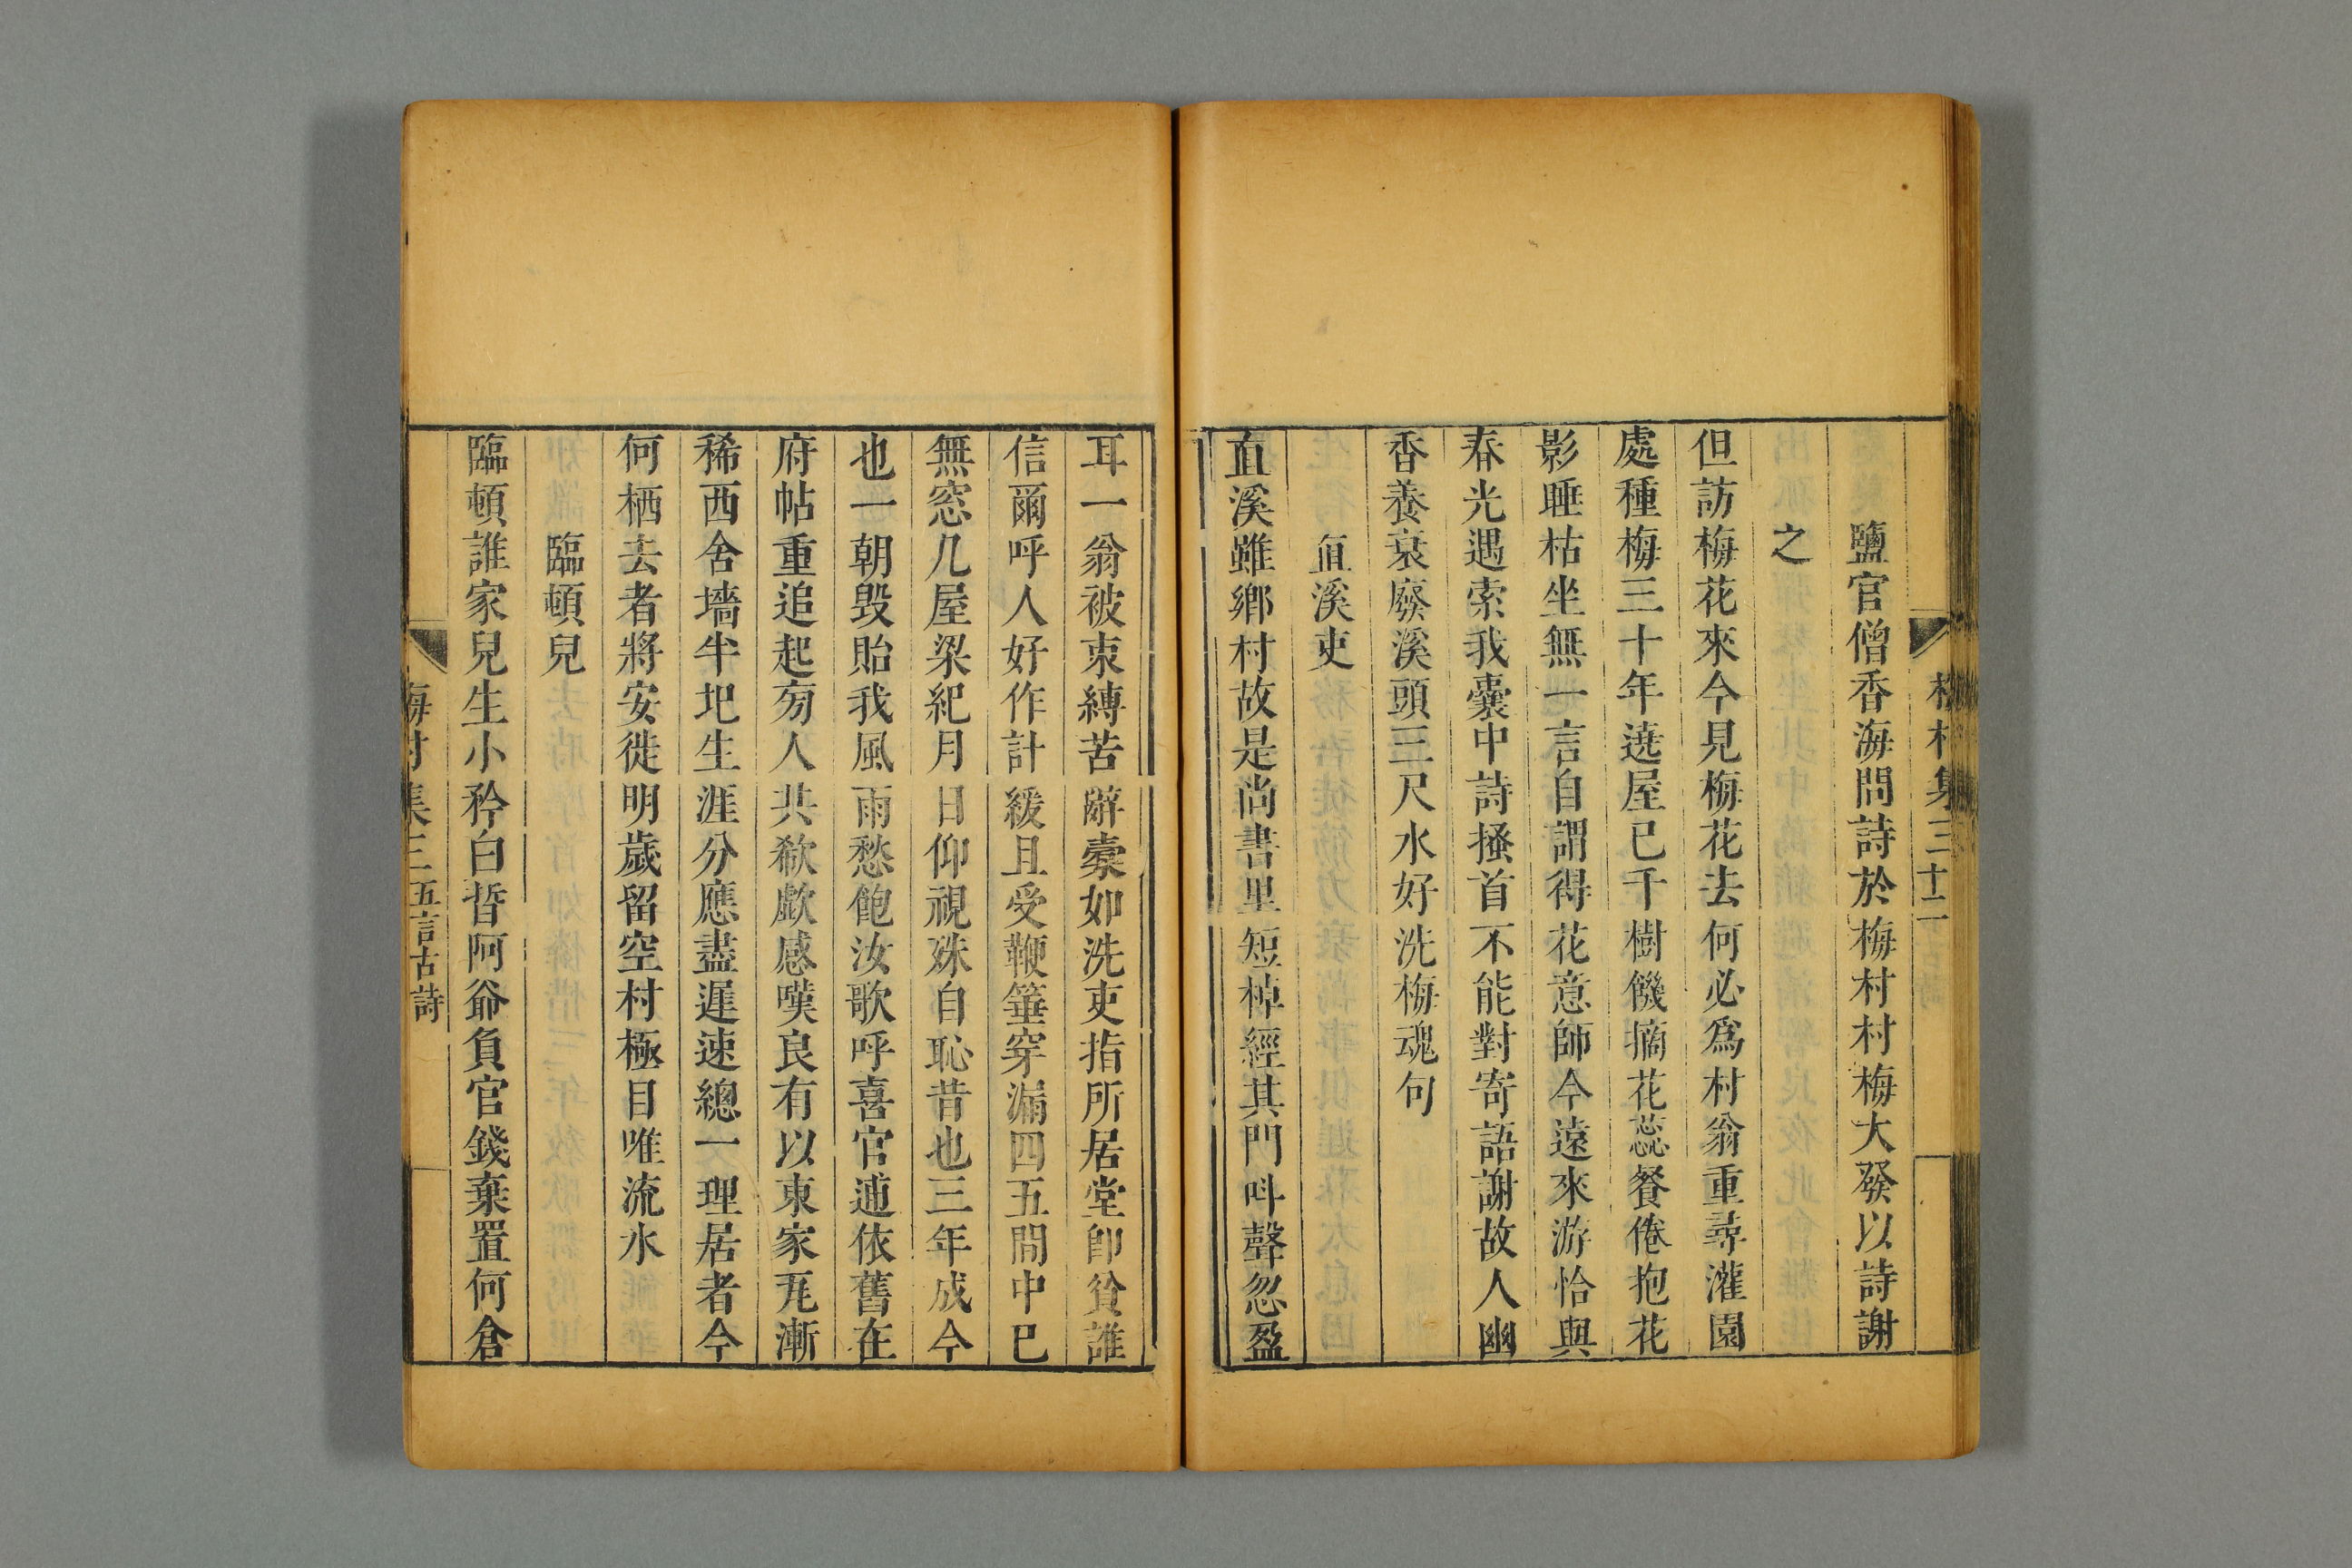 梅村集三 十二
鹽官僧香海問詩於梅村村梅大發以詩謝
之
但訪梅花來今見梅花去何必爲村翁重尋灌園
處種梅三十年遶屋已千樹饑摘花蕊餐倦抱花
影睡枯坐無一言自謂得花意師今遠來游恰與
春光遇索我囊中詩搔首不能對寄語謝故人幽
香養衰廢溪頭三尺水好洗梅魂句
直溪吏
直溪雖鄉村故是尚書里短棹經其門呌聲忽盈
耳一翁被束縛苦辭橐如洗吏指所居堂卽貧誰
信爾呼人好作計緩且受鞭箠穿漏四五間中已
無窓几屋梁紀月日仰視殊自恥昔也三年成今
也一朝毀貽我風雨愁飽汝歌呼喜官逋依舊在
府帖重追起旁人共欷歔感嘆良有以東家瓦漸
稀西舍墻半圯生涯分應盡遲速總一理居者今
何栖去者將安徙明歲留空村極目唯流水
臨頓兒
臨頓誰家兒生小矜白皙阿爺負官錢棄置何倉
梅村集三 五言古詩